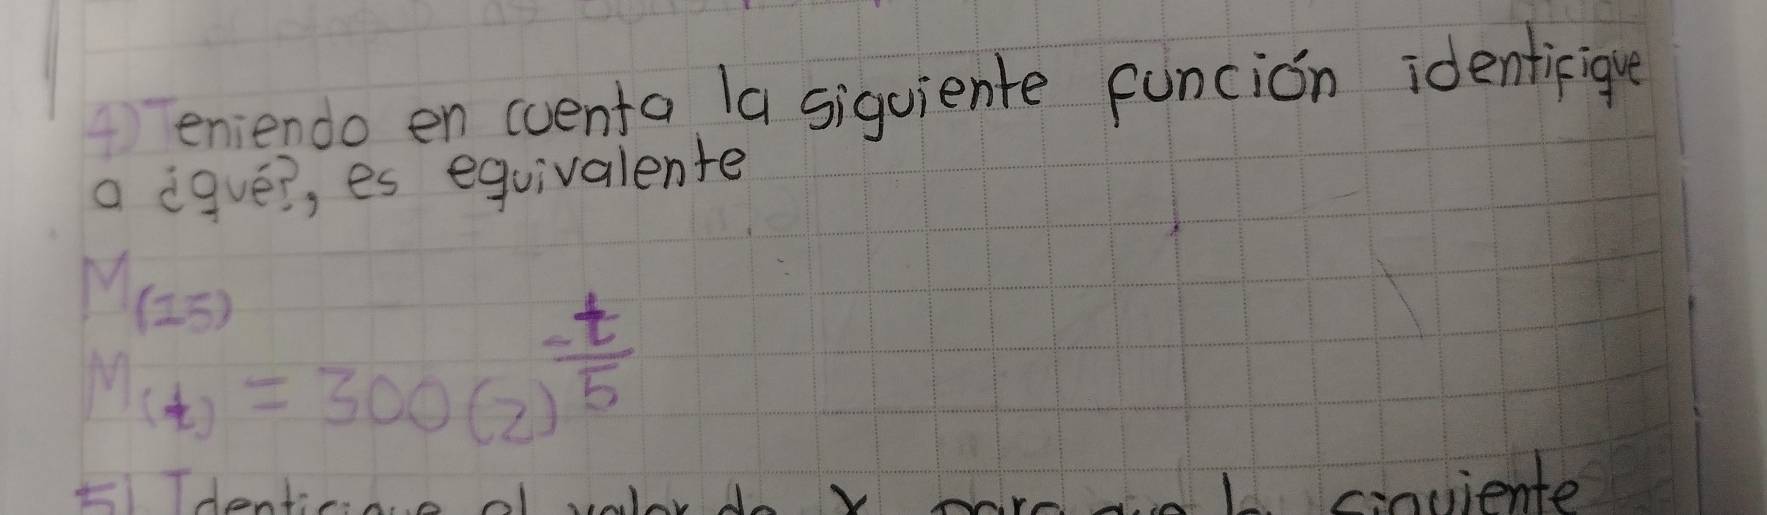 4) Teniendo en cuenta la siguiente función identifique
a ¿qué?, es equivalente
M(15)
M(t) = 300(2)^(-t/5)
5) Identifique el valor de x para que la siguiente